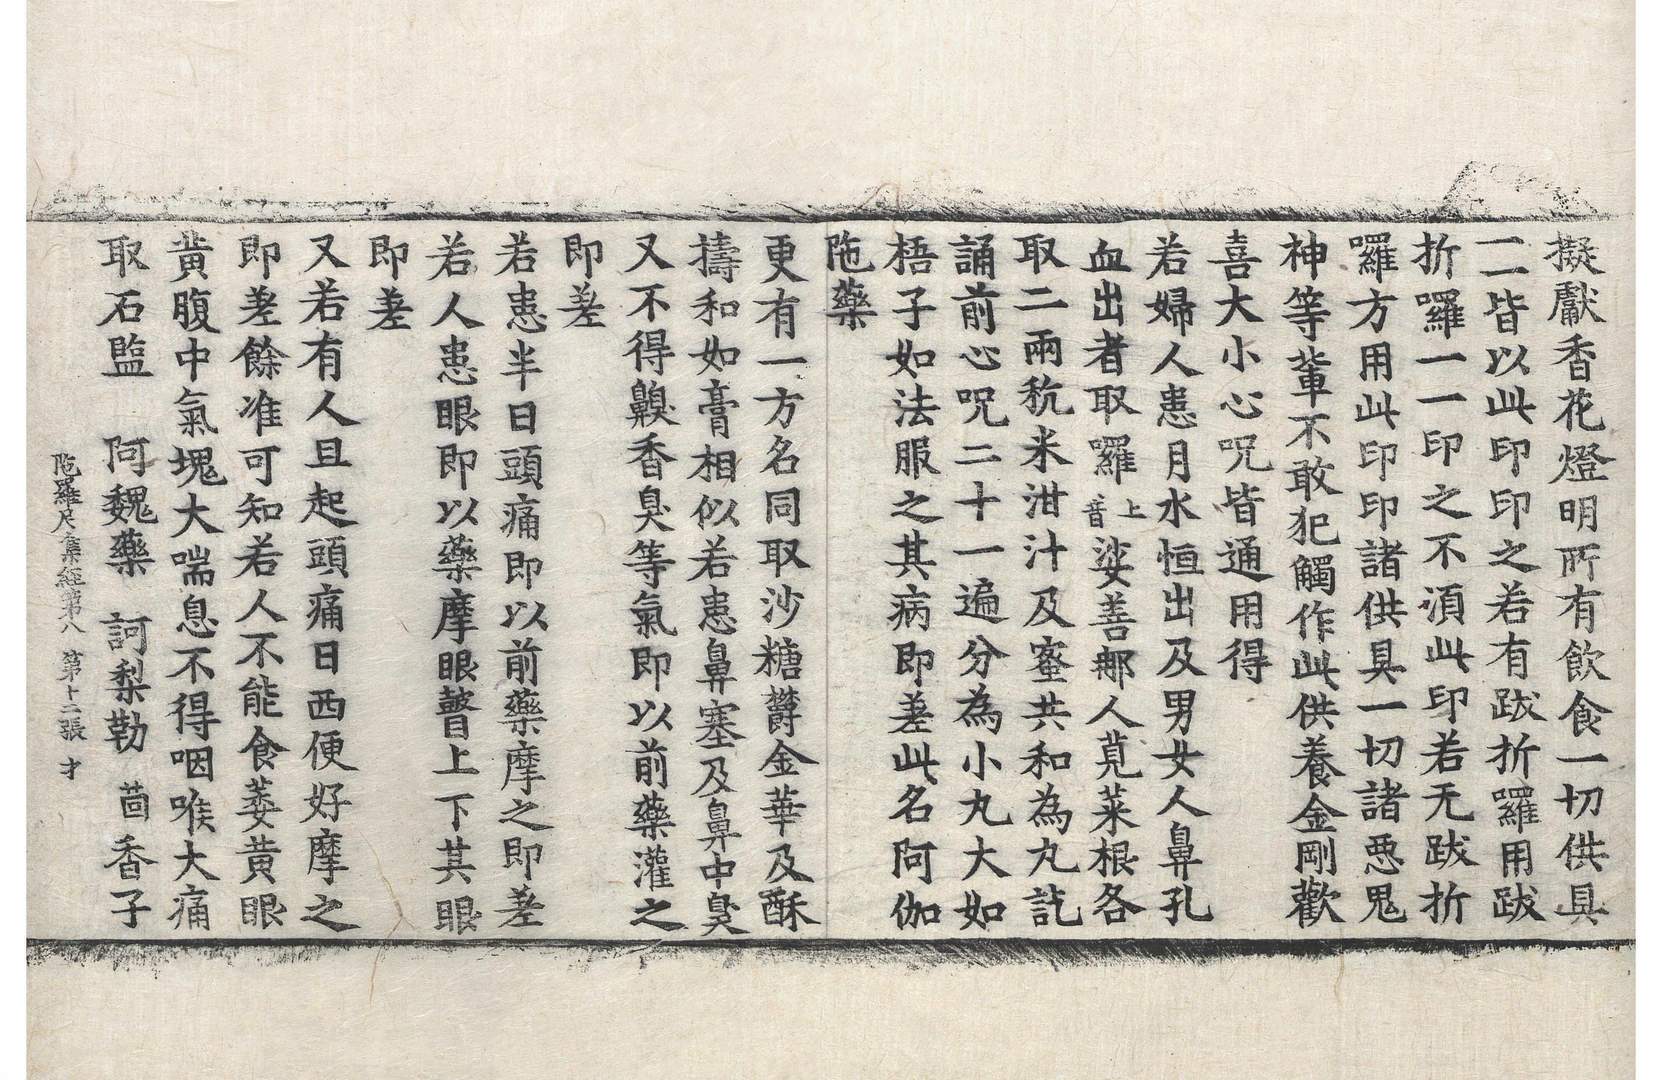 擬獻香花燈明所有飲食一切供具
一一皆以此印印之若有跋折囉用跋
折囉一一印之不湏此印若无跋折
囉方用此印印諸供具一切諸恶鬼
神等軰不敢犯觸作此供養金剛歡
喜大小心呪皆通用得
若婦人患月水恒出及男女人鼻孔
血出者取囉上音娑善郍人莧菜根各
取二兩秔米泔汁及蜜共和為丸訖
誦前心呪二十一遍分為小丸大如
梧子如法服之其病即差此名阿伽
陁藥
更有一方名同取沙糖欝金華及酥
擣和如膏相似若患鼻塞及鼻中臭
又不得齅香臭等氣即以前藥灌之
即差
若患半日頭痛即以前藥摩之即差
若人患眼即以藥摩眼瞼上下其眼
即差
又若有人旦起頭痛日西便好摩之
即差餘准可知若人不能食萎黄眼
黄腹中氣塊大喘息不得咽喉大痛
取石監 阿魏藥 訶梨勒 茴香子
陁羅尼集經第八 第十二張 才